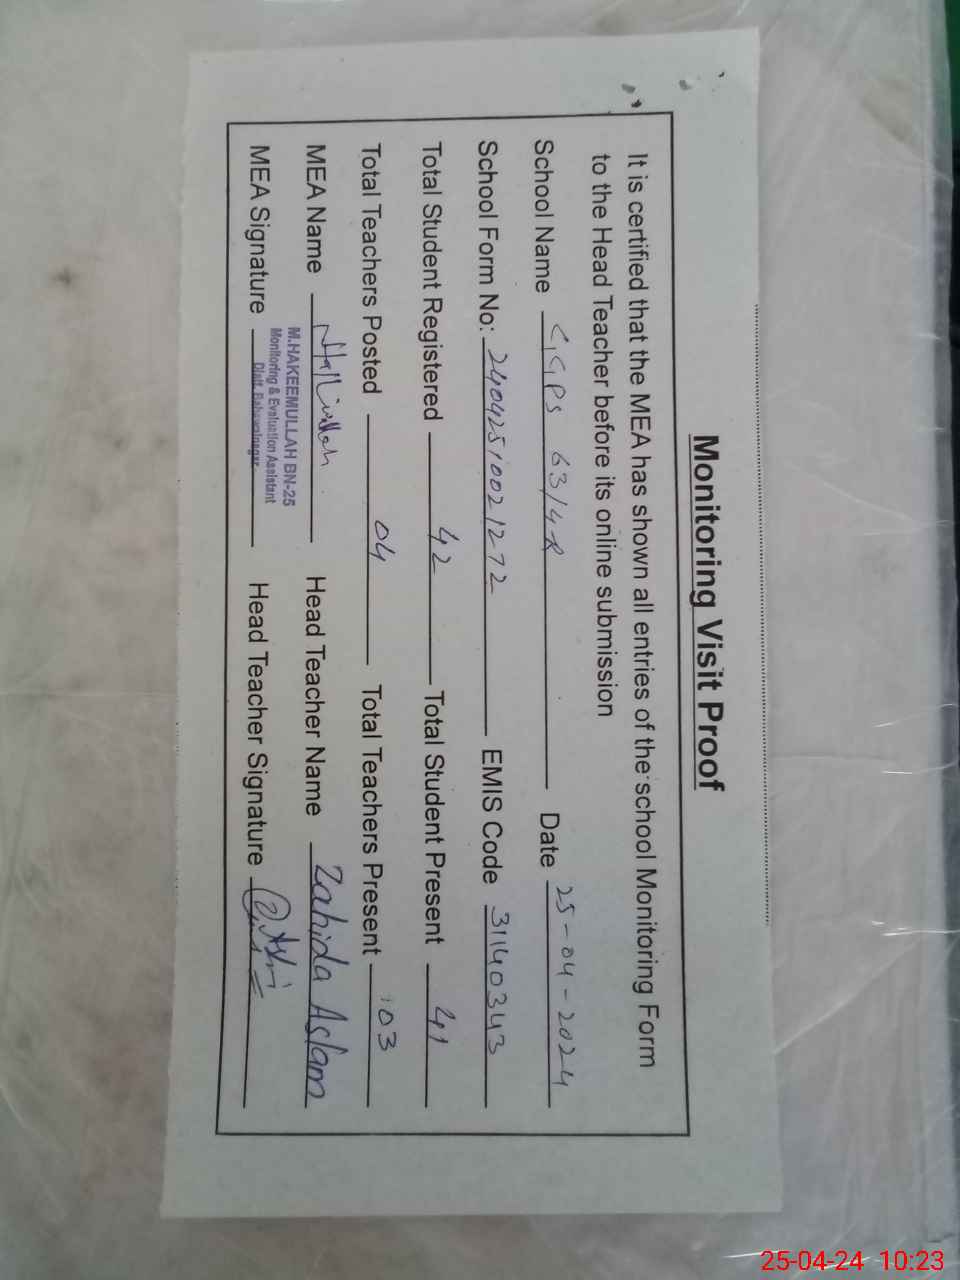 Monitoring Visit Proof
It is certified that the MEA has shown all entries of the school Monitoring Form
to the Head Teacher before its online submission
School Name GGPS 63/4R Date 25-04-2024
School Form No: 24042510021272 EMIS Code 31140343
Total Student Registered 42 Total Student Present 41
Total Teachers Posted 04 Total Teachers Present 03
MEA Name Head Teacher Name Zahida Aslam
M.HAKEEMULLAH BN-25
Monitoring & Evaluation Assistant
Distt. Bahawalnagar
MEA Signature Head Teacher Signature
25-04-24 10:23